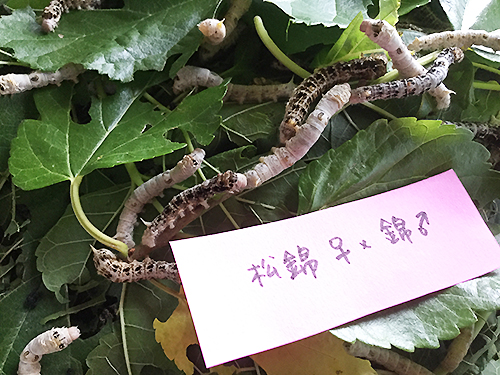 松錦♀×錦♂